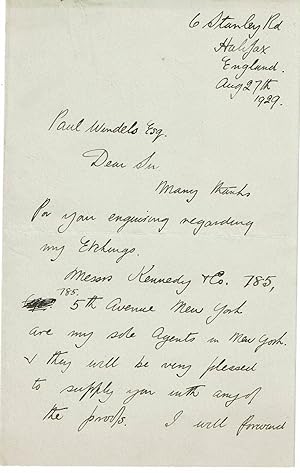 6 Stanley Rd
Halifax
England.
Aug 27th
1929.
Paul Windels Esq.
Dear Sir
Many thanks
for your enquiring regarding
my Etchings.
Messrs Kennedy & Co. 785,
785.
5th Avenue New York
are my sole Agents in New York.
& they will be very pleased
to supply you with any of
the proofs. I will forward